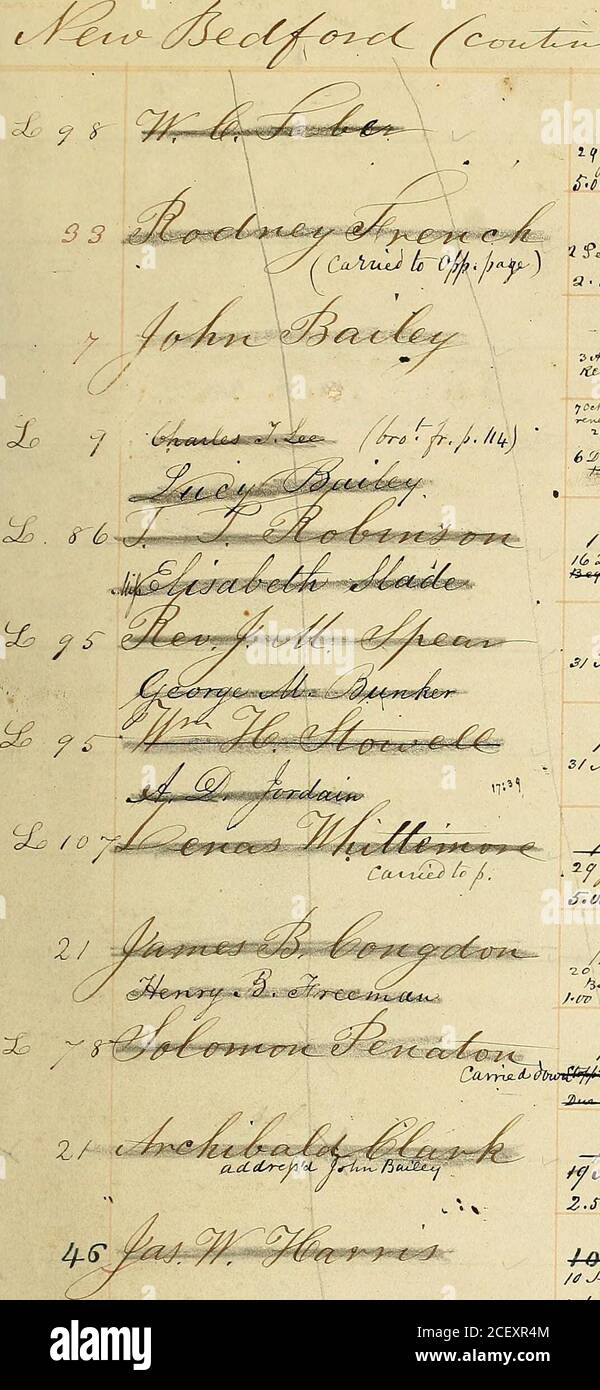 New Bedford (contin
L 98 W. C. Taber
29
5.0
33 Rodney French
(carried to Opp. page)
2.
7 John Bailey
L 9 Charles T. Lee (bro't fr. p. 114)
Lucy Bailey
L. 86 T. Robinson
Elisabeth Slade
16
L 95 Rev. J. M. Spear
31
George M. Bunker
L 95 Wm H. Stowell
31
A. D. Jordain
17:39
L 107 Zenas Whittemore
carried to p.
29
5.0
21 James B. Congdon
20
1.00
Henry B. Freeman
L 78 Solomon Penaton
Carried down
21 Archibald Clark
address'd John Bailey
19
2.5
46 Jas. W. Harris
10
10
alamy
Image ID: 2CEXR4M
www.alamy.com